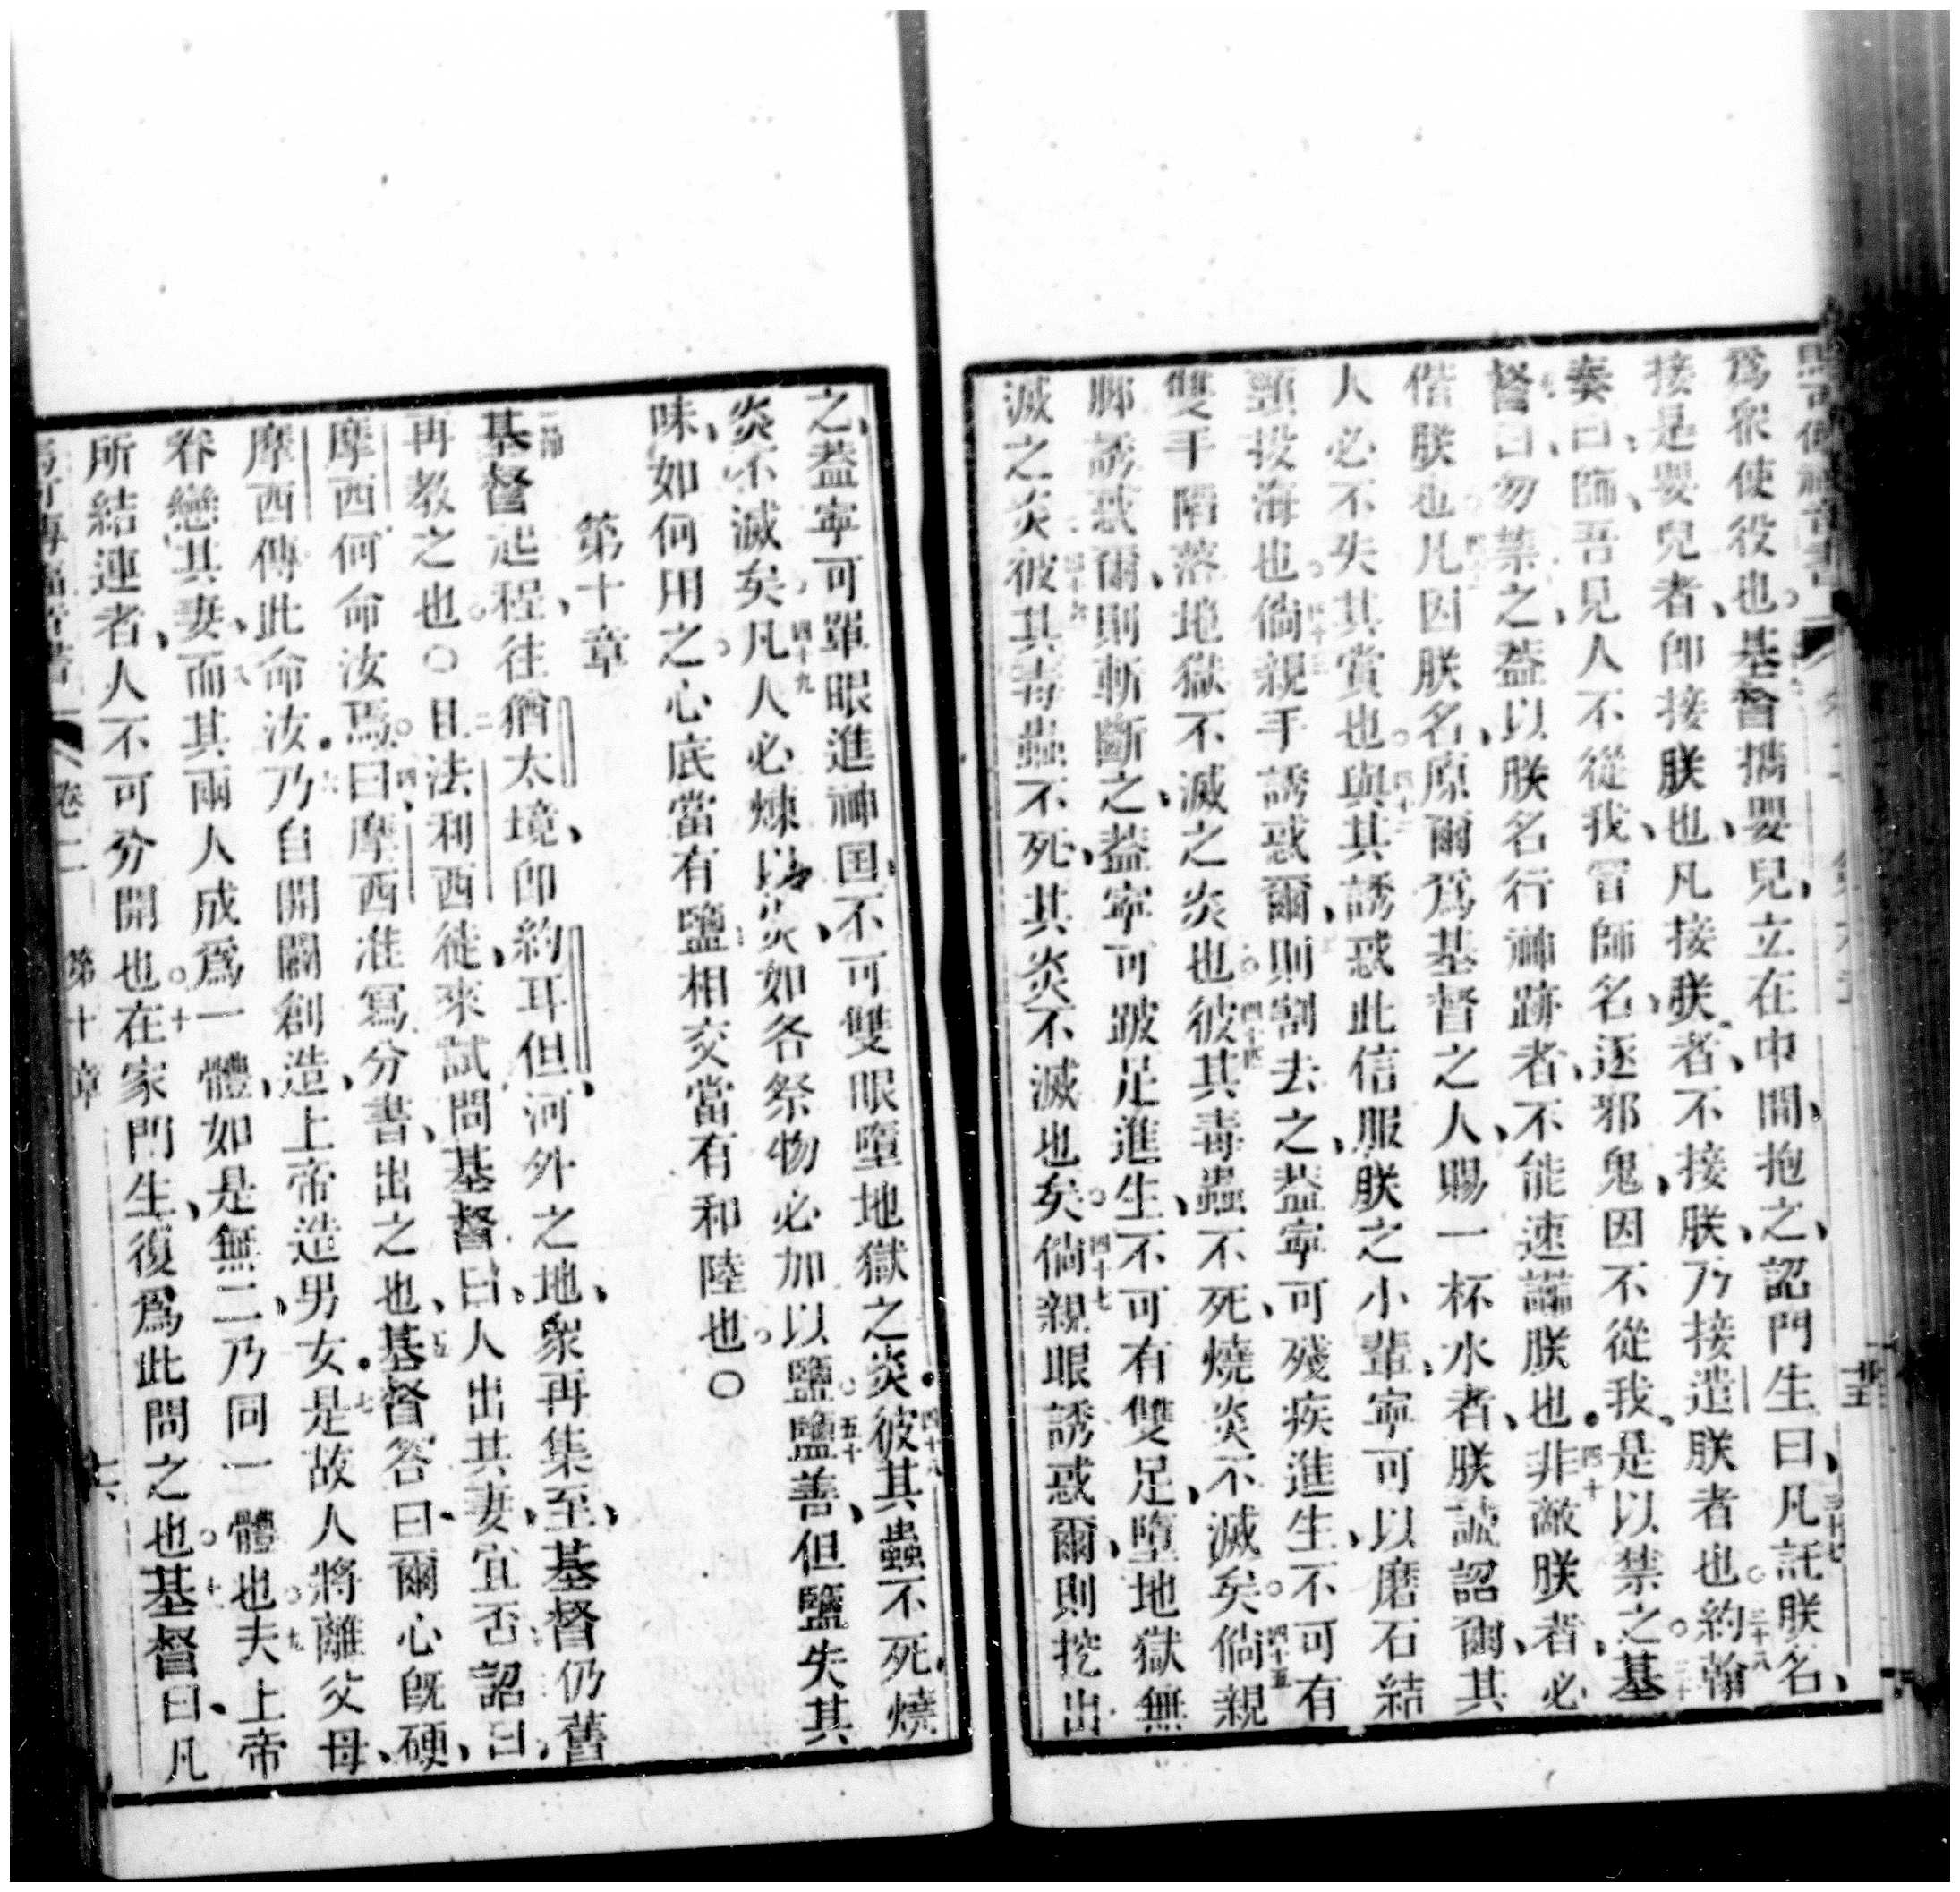 爲衆使役也。基督攜嬰兒、立在中間、抱之、詔門生曰、三十七凡託朕名、
接是嬰兒者、卽接朕也、凡接朕者、不接朕、乃接遣朕者也。三十八約翰
奏曰、師、吾見人不從我、冒師名、逐邪鬼、因不從我、是以禁之。基
督曰、勿禁之、蓋以朕名行神跡者、不能速謡朕也。四十非敵朕者、必
偕朕也。凡因朕名、原爾爲基督之人、賜一杯水者、朕誠詔爾、其
人必不失其賞也。四十二與其誘惑此信服朕之小輩、寧可以磨石結
頸投海也。四十三倘親手誘惑爾、則割去之、蓋寧可殘疾進生、不可有
雙手陷落地獄不滅之炎也。四十四彼其毒蟲不死、燒炎不滅矣。四十五倘親
脚誘惑爾、則斬斷之、蓋寧可跛足進生、不可有雙足、墮地獄無
滅之炎。四十六彼其毒蟲不死、其炎不滅也矣。四十七倘親眼誘惑爾、則挖出
之、蓋寧可單眼進神国、不可雙眼墮地獄之炎。四十八彼其蟲不死、燒
炎不滅矣。四十九凡人必煉以炎、如各祭物必加以鹽。五十鹽善、但鹽失其
味、如何用之。心底當有鹽相交當有和陸也。〇
第十章
一節基督起程、往猶太境、卽約耳但、河外之地、衆再集至、基督仍舊
再教之也。〇二且法利西徒、來試問基督曰、人出其妻、宜否、詔曰、
摩西何命汝焉。四曰、摩西准寫分書、出之也、五基督答曰、爾心旣硬、
摩西傳此命汝。六乃自開闢創造、上帝造男女。七是故人將離父母、
眷戀其妻、八而其兩人成爲一體、如是無二、乃同一體也。九夫上帝
所結連者、人不可分開也。十在家門生、復爲此問之也。十一基督曰、凡
卷二 第十章